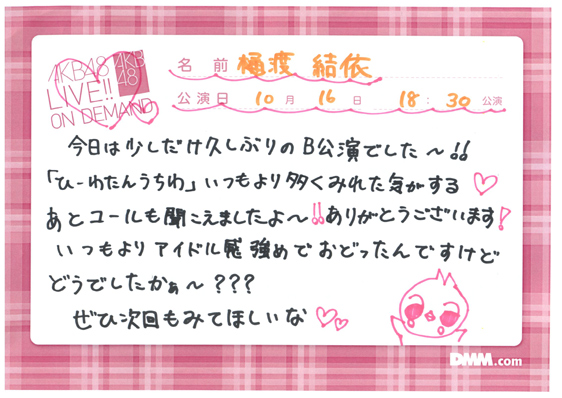 AKB48
LIVE!!
ON DEMAND
AKB
48
名 前 樋渡 結依
公演日 10月 16日 18:30公演
今日は少しだけ久しぶりのB公演でした〜!!
「ひーわたんうちわ」いつもより多くみれた気がする♡
あとコールも聞こえましたよ〜!!ありがとうございます!
いつもよりアイドル感強めでおどったんですけど
どうでしたかぁ〜???
ぜひ次回もみてほしいな♡♡
DMM.com